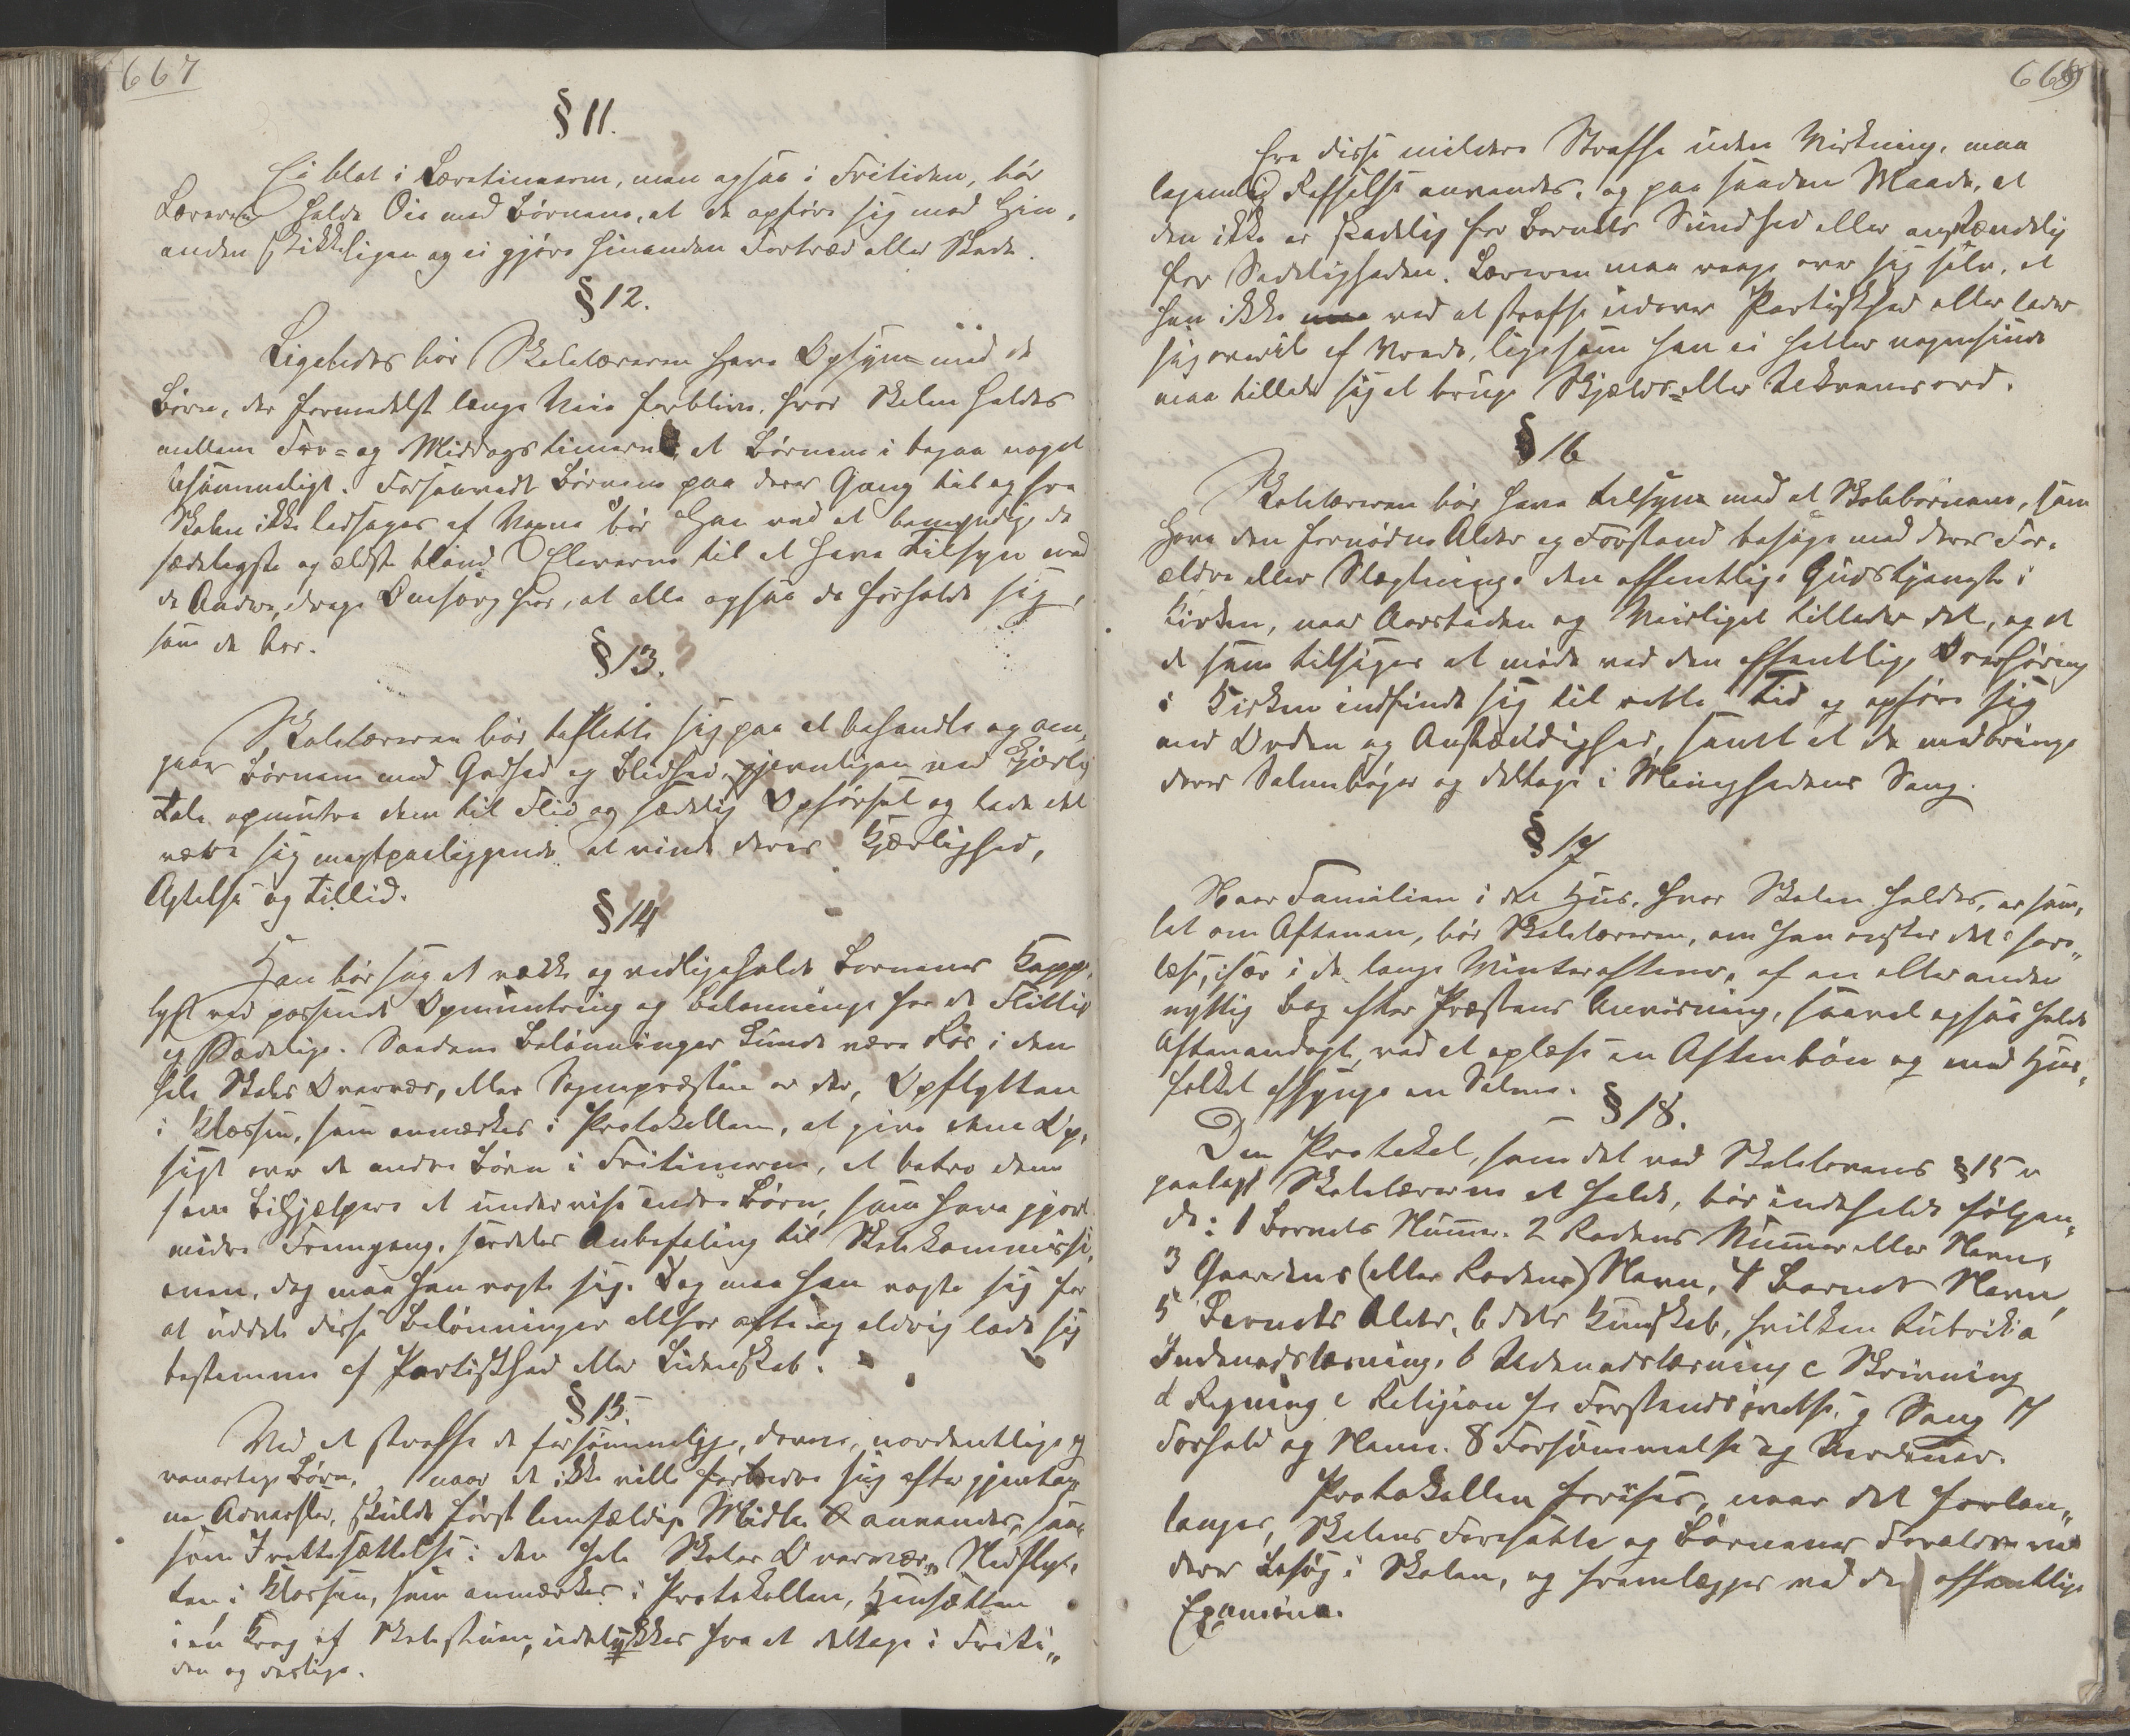 667
§ 11.
Ei blot i Læretimerne, men ogsaa i Fritiden, bør
Læreren holde Øie med Børnene, at de opføre sig mod Hin,
anden skikkeligen og ei gjøre hinanden Fortræd eller Skade.
§ 12.
Ligeledes bør Skolelæreren have Opsyn med de
Børn, der formedelst lange Veie forblive, hvor Skolen holdes
mellem For= og Middagstimerne, at Børnene i begaa noget
usømmeligt. Forsaavidt Børnene paa deres Gang til og fra
Skolen ikke ledsages af Voxne bør Han ved at bemyndige de
sædeligste og ældste bland Eleverne til at have Tilsyn med
de Andre, drage Omsorg for, at alle ogsaa da forholde sig,
som de bør.
§ 13.
Skolelæreren bør beflitte sig paa at behandle og om,
gaaes Børnene med Godhed og Blidhed, gjennligen ved Kjærlig
Tale opmuntre dem til Flid og sædelig Opførsel og lade det
være sig magtpaaliggende at vinde deres Kjærlighed,
Agtelse og Tillid.
§ 14
Han bør søge at vække og vedligeholde Børnenes Kapp,
lyst ved passende Opmuntring og Belønninge for de Flittige
og Sædelige. Saadane Belønninger kunde være Roes i den
hele Skoles Overvær, eller Sognepræsten er der, Opflytten
i Klassen, som anmærkes i Protokollen, at give dem Op,
sigt over de andre Børn i Fritimerne, at betro dem
som Bihjælpere at undervise andre Børn, som have gjort
mindre Fremgang, særdeles Anbefaling til Skolekommissi,
onen, dog maa han vogte sig. Dog maa han vogte sig for
at uddele disse Belønninger altfor ofte og aldrig lade sig
bestemme af Partiskhed eller Lidenskab.
§ 15.
Ved at straffe de forsømmelige, dovne, uordentlige og
vanartige Børn, naar de ikke ville forbedre sig efter gjentag
ne Advarsler, skulde først lemfældige Midler anvendes, saa,
som Irettesættelse i den hele Skoles Overvær, Nedflyt,
ten i Klassen, som anmærkes i Protokollen, Hensætten
i en Krog af Skolestuen, udelukkes fra at deltage i Friti„
den og deslige.
668
Ere disse mildere Straffe uden Virkning, maa
legemlig Refselse anvendes, og paa saadan Maade, at
den ikke er skadelig for Barnets Sundhed eller anstændelig
for Sædeligheden. Læreren maa vaage over sig selv, at
han ikke ved at straffe udøver Partiskhed eller lader
sig overile af Vrede, ligesom han ei heller nogensinde
maa tillade sig at bruge Skjælds= eller Ukvemsord.
§ 16
Skolelæreren bør have Tilsyn med at Skolebørnene, som
have den fornødne Alder og Forstand besøge med deres For,
ældre eller Slægtninge den offentlige Gudstjeneste i
Kirken, naar Aarstiden og Veirliget tillader det, og at
de som tilsiges at møde ved den offentlige Overhøring
i Kirken indfinde sig til rette Tid og opføre sig
med Orden og Anstændighed, samt at de medbringe
deres Salmebøger og deltage i Menighedens Sang.
§ 17
Naar Familien i det Huus, hvor Skolen holdes, er sam,
let om Aftenen, bør Skolelæreren, om han ønsker det, fore„
læse, især i de lange Vinteraftener, af en eller anden
nyttig Bog efter Præstens Anviisning, saavel ogsaa holde
Aftenandagt, ved at oplæse en Aftenbøn og med Huus„
folket afsynge en Salme.
§ 18.
Den Protokol, som det ved Skolelovens § 15 er
paalagt Skolelærerne at holde, bør indeholde følgen„
de: 1 Barnets Numer. 2 Rodens Numer eller Navn,
3 Gaardens (eller Rodens) Navn, 4 Barnets Navn,
5 Barnets Alder, 6 dets Kundskab, hvilken Rubrik: a
Indenadslæsning, b Udenadslæsning c Skrivning
d Regning e Religion f Forstandsøvelse, g Sang 7
Forhold og Nemme. 8 Forsømmelse og Aarsager.
Protokollen forevises, naar det forlan„
langes, Skolens Foresatte og Børnenes Forældre ved
deres Besøg i Skolen, og fremlægges ved de offentlige
Examina.